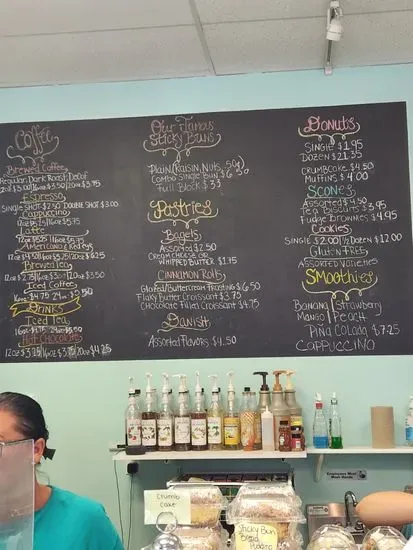 Coffee
Brewed Coffee
Regular, Dark Roast, Decaf
12oz $3.00/16oz $3.50/20oz $3.75
Espresso
Single Shot $2.50 Double Shot $3.00
Cappuccino
12oz $5.25 16oz $5.75
Latte
12oz $5.25 16oz $5.75
Americano/Redeye
Brewed Tea
12oz 2.75 16oz $3.00 20oz $3.50
Iced Coffee
Drinks
Iced Tea
Hot Chocolate
12oz $3.25 16oz $3.75 20oz $4.25
Our Famous
Sticky Buns
Plain, Raisin, Nuts
Combo Single Bun
Full Block $33
Pastries
Bagels
Assorted $2.50
Cream Cheese or
Whipped Butter $1.75
Cinnamon Rolls
Glazed/Buttercream Frosting $6.50
Flaky Butter Croissant $3.75
Chocolate Filled Croissant $4.75
Danish
Assorted Flavors $4.50
Donuts
Single $1.95
Dozen $21.35
Crumbcake $4.50
Muffins $4.00
Scones
Assorted $4.50
Tea Biscuits $3.95
Fudge Brownies $4.95
Cookies
Single $2.00 1/2 Dozen $12.00
Gluten Free
Assorted Varieties
Smoothies
Banana Strawberry
Mango Peach
Piña Colada $7.25
Cappuccino
Employees Must
Wash Hands
Crumb
Cake
Sticky Bun
Bread
Pudding